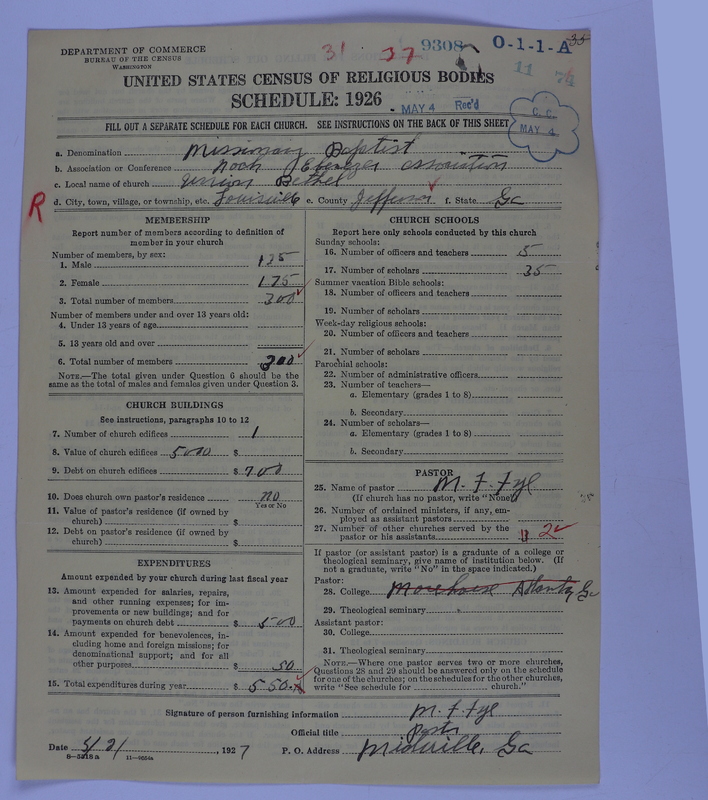 DEPARTMENT OF COMMERCE
BUREAU OF THE CENSUS
WASHINGTON
31 27 9308 O-1-1-A 35
11 74
UNITED STATES CENSUS OF RELIGIOUS BODIES
SCHEDULE: 1926
MAY 4 Rec'd
C. C.
MAY 4
FILL OUT A SEPARATE SCHEDULE FOR EACH CHURCH. SEE INSTRUCTIONS ON THE BACK OF THIS SHEET
a. Denomination Missionary Baptist
b. Association or Conference Noah Ebenezer Association
c. Local name of church Union Bethel
R
d. City, town, village, or township, etc. Louisville e. County Jefferson f. State Ga
MEMBERSHIP
Report number of members according to definition of member in your church
Number of members, by sex:
1. Male 125
2. Female 175
3. Total number of members 300
Number of members under and over 13 years old:
4. Under 13 years of age
5. 13 years old and over
6. Total number of members 300
NOTE.—The total given under Question 6 should be the
same as the total of males and females given under Question 3.
CHURCH BUILDINGS
See instructions, paragraphs 10 to 12
7. Number of church edifices 1
8. Value of church edifices 5000 $
9. Debt on church edifices $ 700
10. Does church own pastor's residence no
Yes or No
11. Value of pastor's residence (if owned by
church) $
12. Debt on pastor's residence (if owned by
church) $
EXPENDITURES
Amount expended by your church during last fiscal year
13. Amount expended for salaries, repairs,
and other running expenses; for im-
provements or new buildings; and for
payments on church debt $ 500
14. Amount expended for benevolences, in-
cluding home and foreign missions; for
denominational support; and for all
other purposes $ 50
15. Total expenditures during year $ 550.
CHURCH SCHOOLS
Report here only schools conducted by this church
Sunday schools:
16. Number of officers and teachers 5
17. Number of scholars 35
Summer vacation Bible schools:
18. Number of officers and teachers
19. Number of scholars
Week-day religious schools:
20. Number of officers and teachers
21. Number of scholars
Parochial schools:
22. Number of administrative officers
23. Number of teachers—
a. Elementary (grades 1 to 8)
b. Secondary
24. Number of scholars—
a. Elementary (grades 1 to 8)
b. Secondary
PASTOR
25. Name of pastor M. F. Fyl
(If church has no pastor, write "None")
26. Number of ordained ministers, if any, em-
ployed as assistant pastors
27. Number of other churches served by the
pastor or his assistants 2
If pastor (or assistant pastor) is a graduate of a college or
theological seminary, give name of institution below. (If
not a graduate, write "No" in the space indicated.)
Pastor:
28. College Morehouse Atlanta, Ga
29. Theological seminary
Assistant pastor:
30. College
31. Theological seminary
NOTE.—Where one pastor serves two or more churches,
Questions 28 and 29 should be answered only on the schedule
for one of the churches; on the schedules for the other churches,
write "See schedule for church."
Signature of person furnishing information M. F. Fyl
Official title Pastor
Date 3/21, 1927 P. O. Address Midville, Ga
8-5218 a 11-9554a